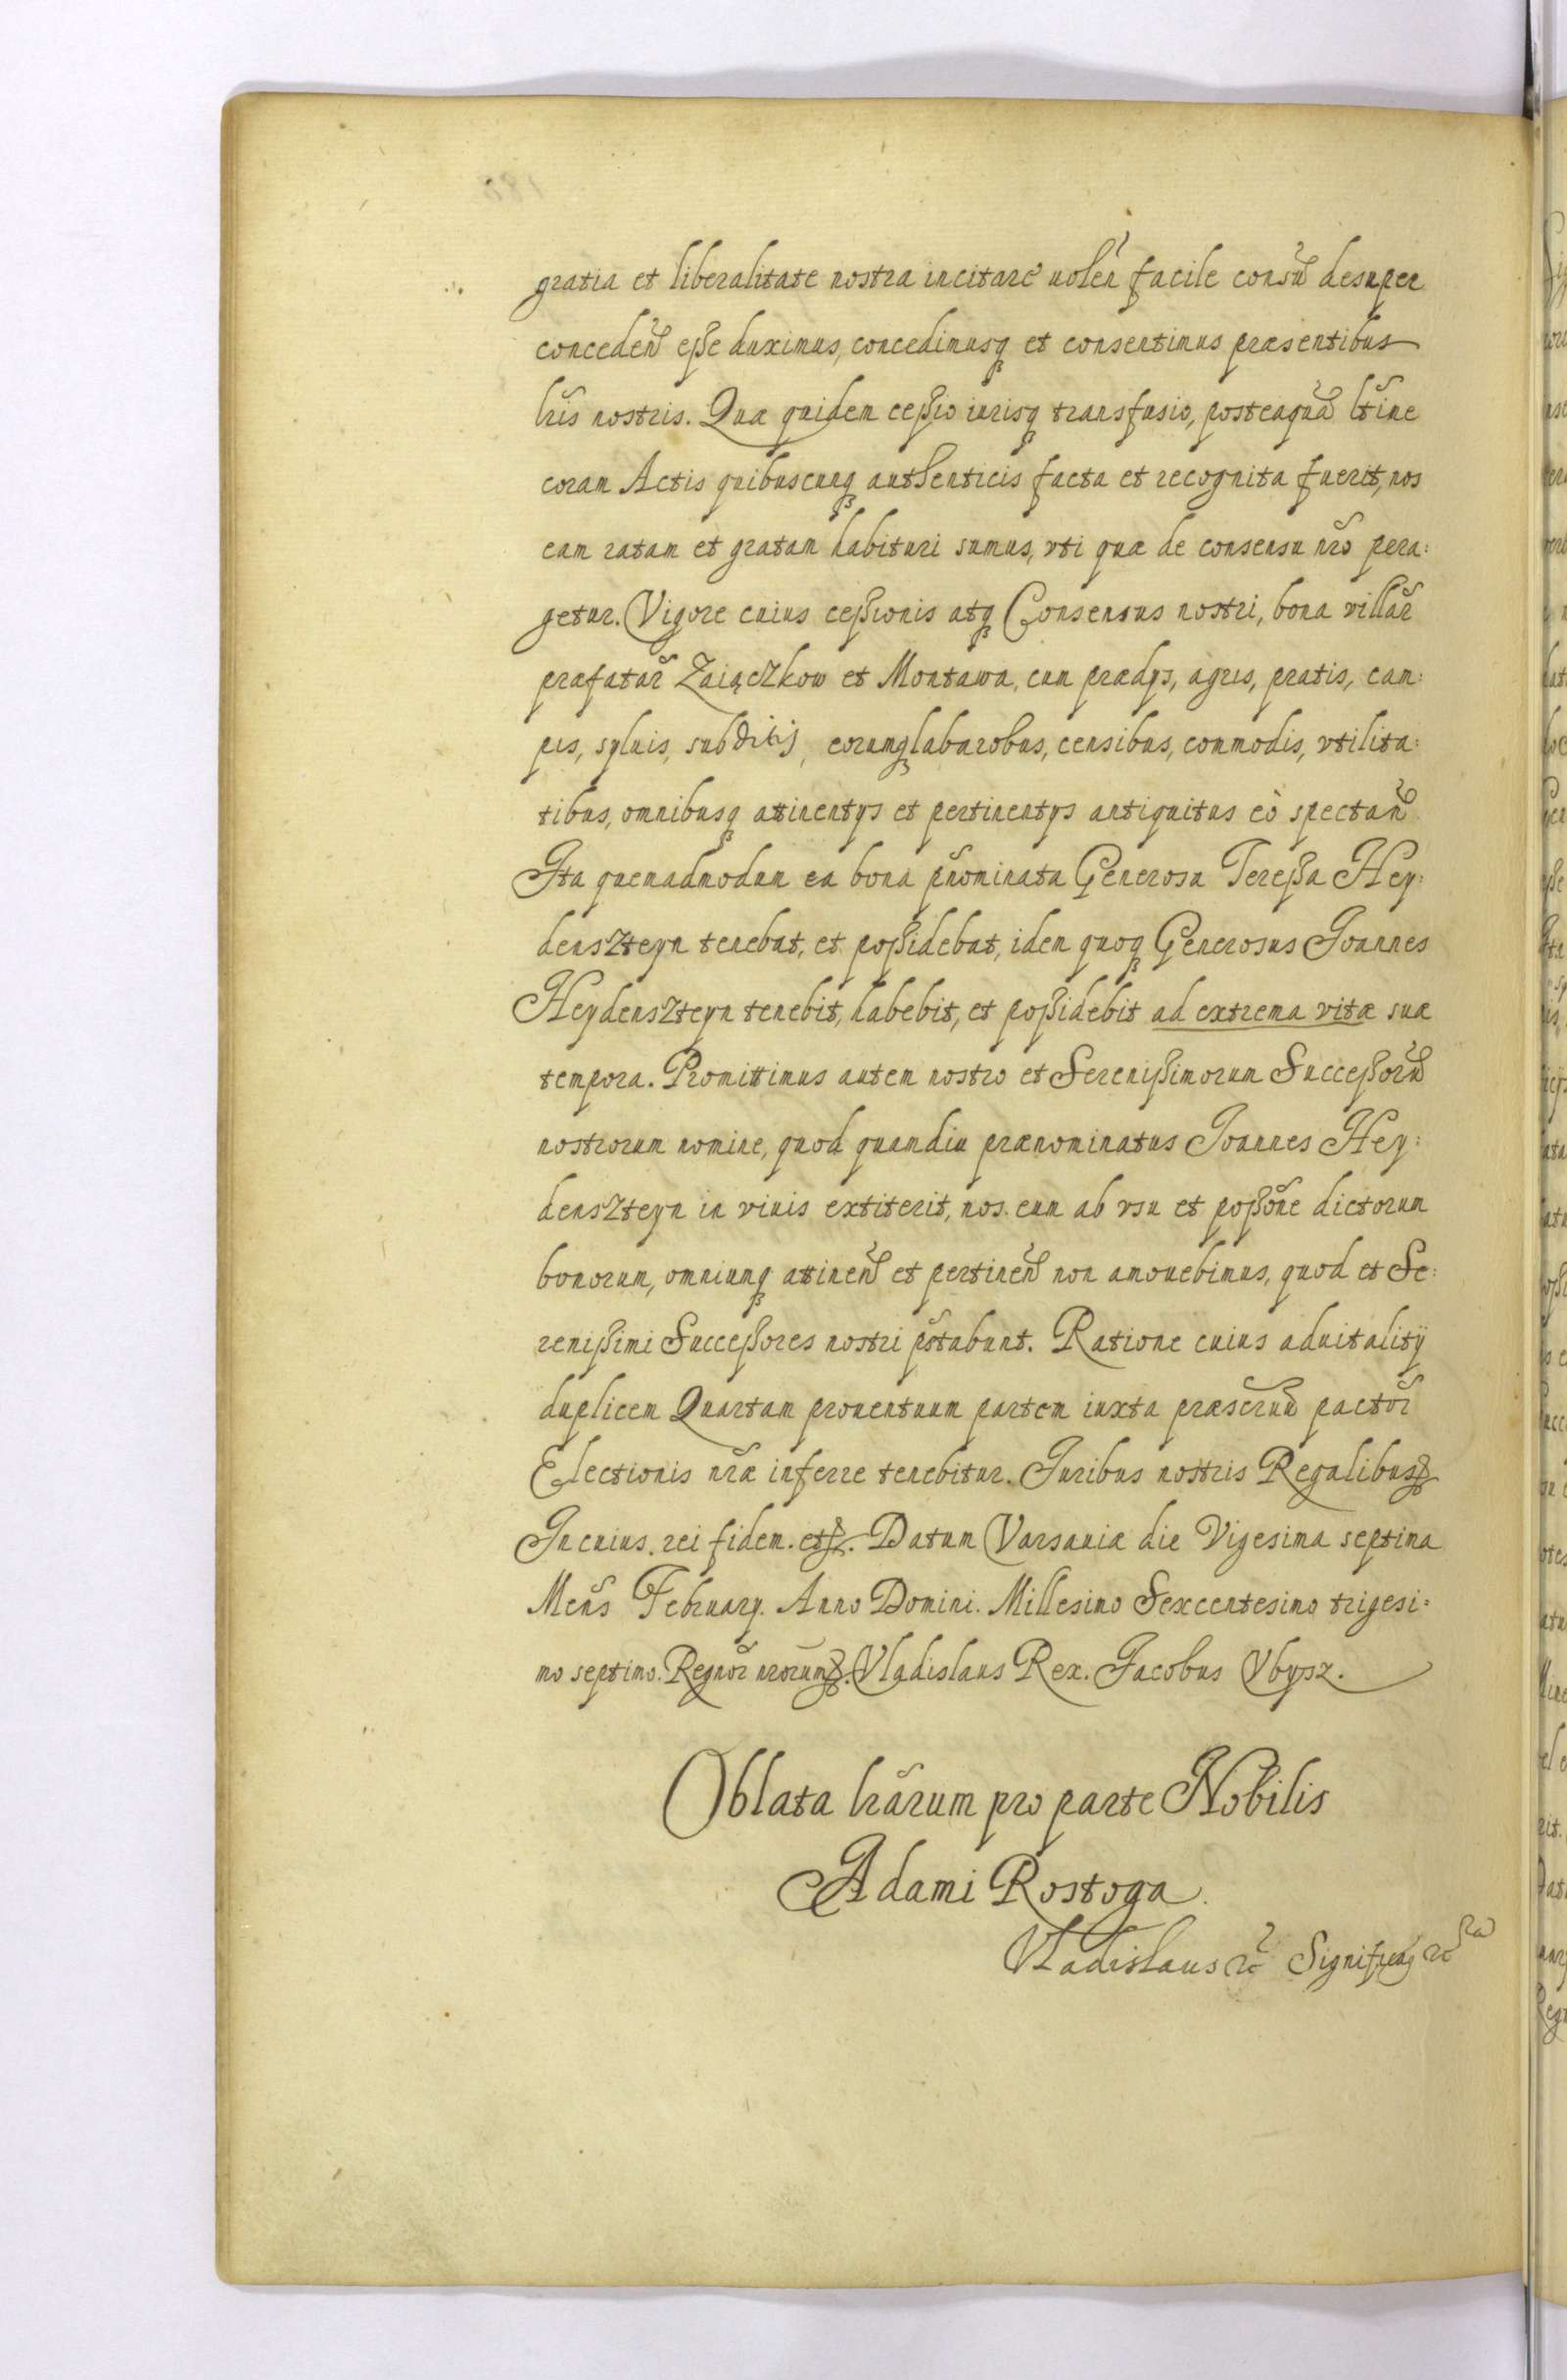 gratia et liberalitate nostra incitare uolen̄ facile consū desuper
conceden̄ esse duximus, concedimusq́ et consentimus præsentibus
lr̄is nostris. Quæ quidem cessio iurisq́ transfusio, posteaquā ltīme
coram Actis quibuscunq́ authenticis facta et recognita fuerit, nos
eam ratam et gratam habituri sumus, vti quæ de consensu nr̄o pera:
getur. Vigore cuius cessionis atq́ Consensus nostri, bona villar̄
præfatar̄ Zaiączkow et Montawa, cum prædijs, agris, pratis, cam:
pis, syluis, subditis, eorumq́ laboribus, censibus, commodis, vtilita:
tibus, omnibusq́ attinentijs et pertinentijs antiquitus eò spectan̄
Ita quemadmodum ea bona pn̄ominata Generosa Teressa Hey:
denszteyn tenebat, et possidebat, idem quoq́ Generosus Joannes
Heydenszteyn tenebit, habebit, et possidebit ad extrema vitæ suæ
tempora. Promittimus autem nostro et Serenissimorum Successorū
nostrorum nomine, quod quamdiu prænominatus Joannes Hey:
denszteyn in viuis extiterit, nos eum ab vsu et possōne dictorum
bonorum, omniumq́ attinen̄ et pertinen̄ non amouebimus, quod et Se:
renissimi Successores nostri pστabunt. Ratione cuius aduitalitij
duplicem Quartam prouentuum partem iuxta præscrum̄ pactor̄
Electionis nr̄æ inferre tenebitur. Iuribus nostris Regalibus &
In cuius rei fidem. et &. Datum Varsauiæ die Vigesima septima
Mens̄ Februarij. Anno Domini. Millesimo Sexcentesimo trigesi:
mo septimo. Regnor̄ nr̄orum &. Vladislaus Rex. Jacobus Vbysz.
Oblata lr̄arum pro parte Nobilis
Adami Rostoga.
Vladislaus &c Significamus &c